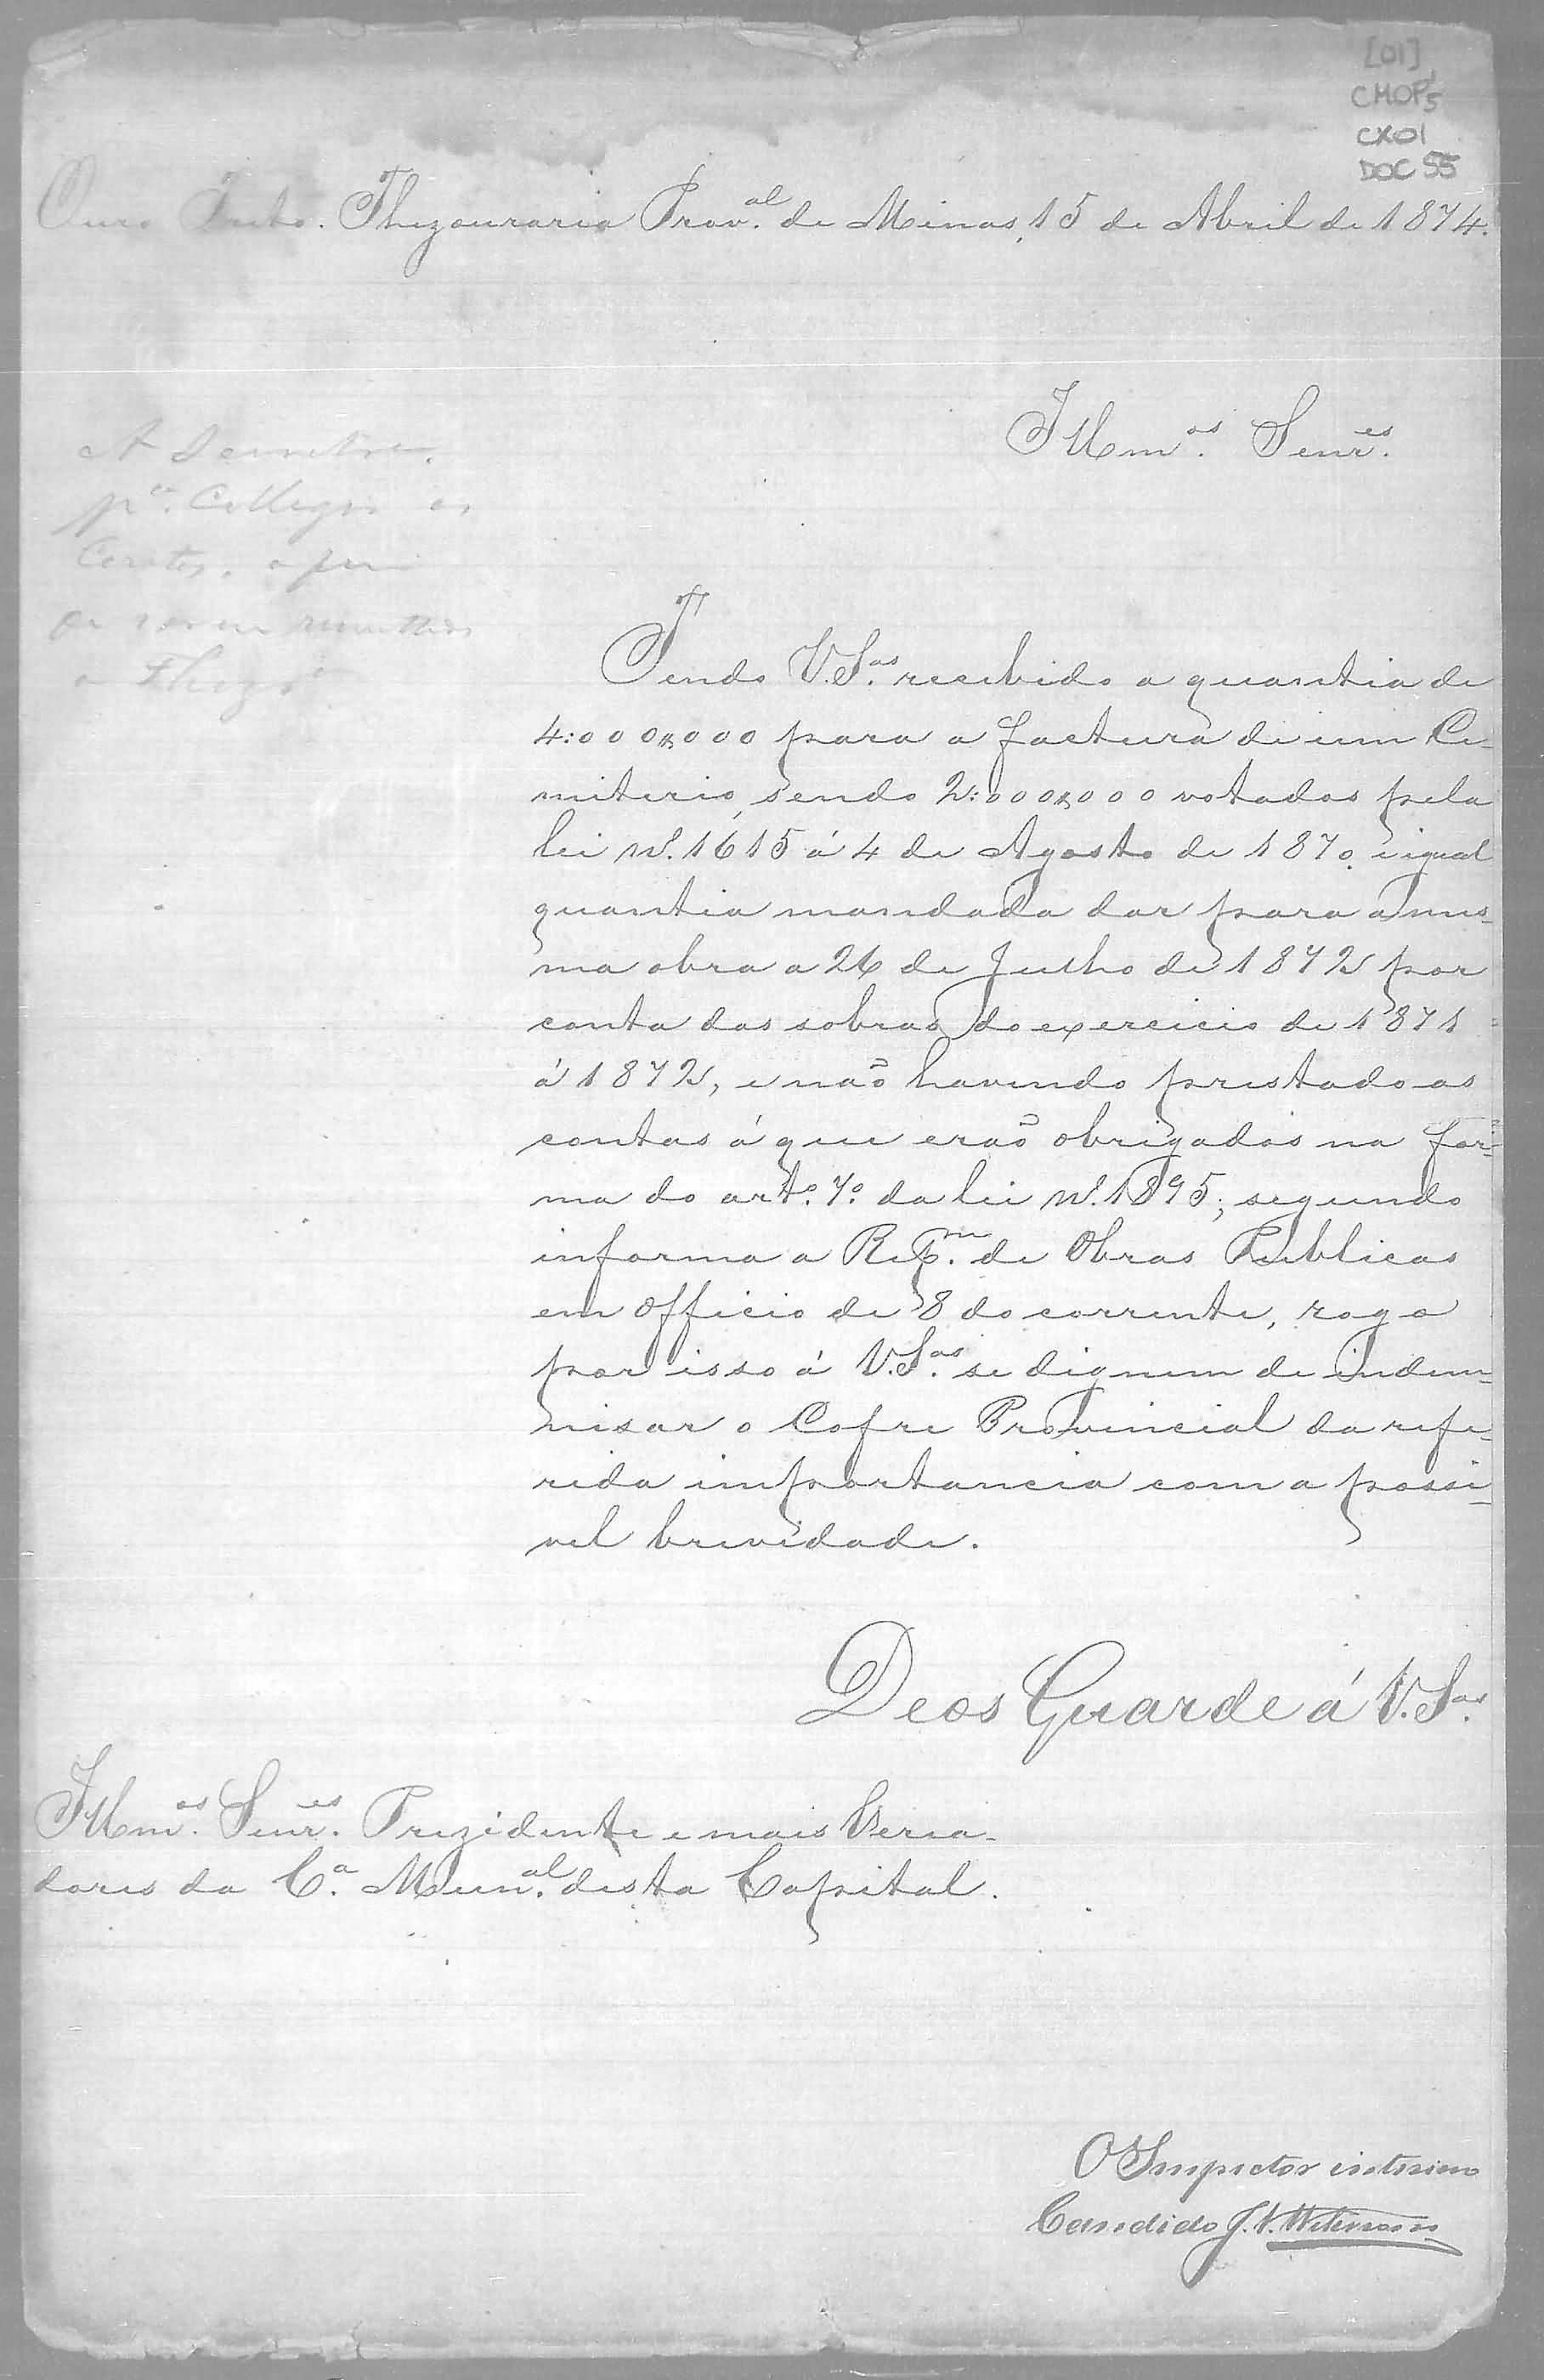 [01]
CMOP
CX01
DOC 55
Ouro Preto. Thezouraria Prov.al de Minas, 15 de Abril de 1874.
Illm.os Senr.es
A Secretr.a
p.a Colligir as
Contas, a fim
de serem remettidas
a Thezr.a
Tendo V.S.as recebido a quantia de
4:000$000 para a factura de um Ce-
miterio, sendo 2:000$000 votados pela
lei N. 1615 á 4 de Agosto de 1870 e igual
quantia mandada dar para a mes-
ma obra a 26 de Julho de 1872 por
conta das sobras do exercicio de 1871
á 1872, e não havendo prestado as
contas á que erão obrigados na for-
ma do art.o 7.o da lei N. 1895, segundo
informa a Rep.m de Obras Publicas
em officio de 8 do corrente, rogo
por isso á V.S.as se dignem de indem-
nisar o Cofre Provincial da refe-
rida importancia com a possi-
vel brevidade.
Deos Guarde á V.S.as
Illm.os Senr.es Prezidente e mais Verea-
dores da C.a Mun.al desta Capital.
O Inspector interino
Candido J. T.